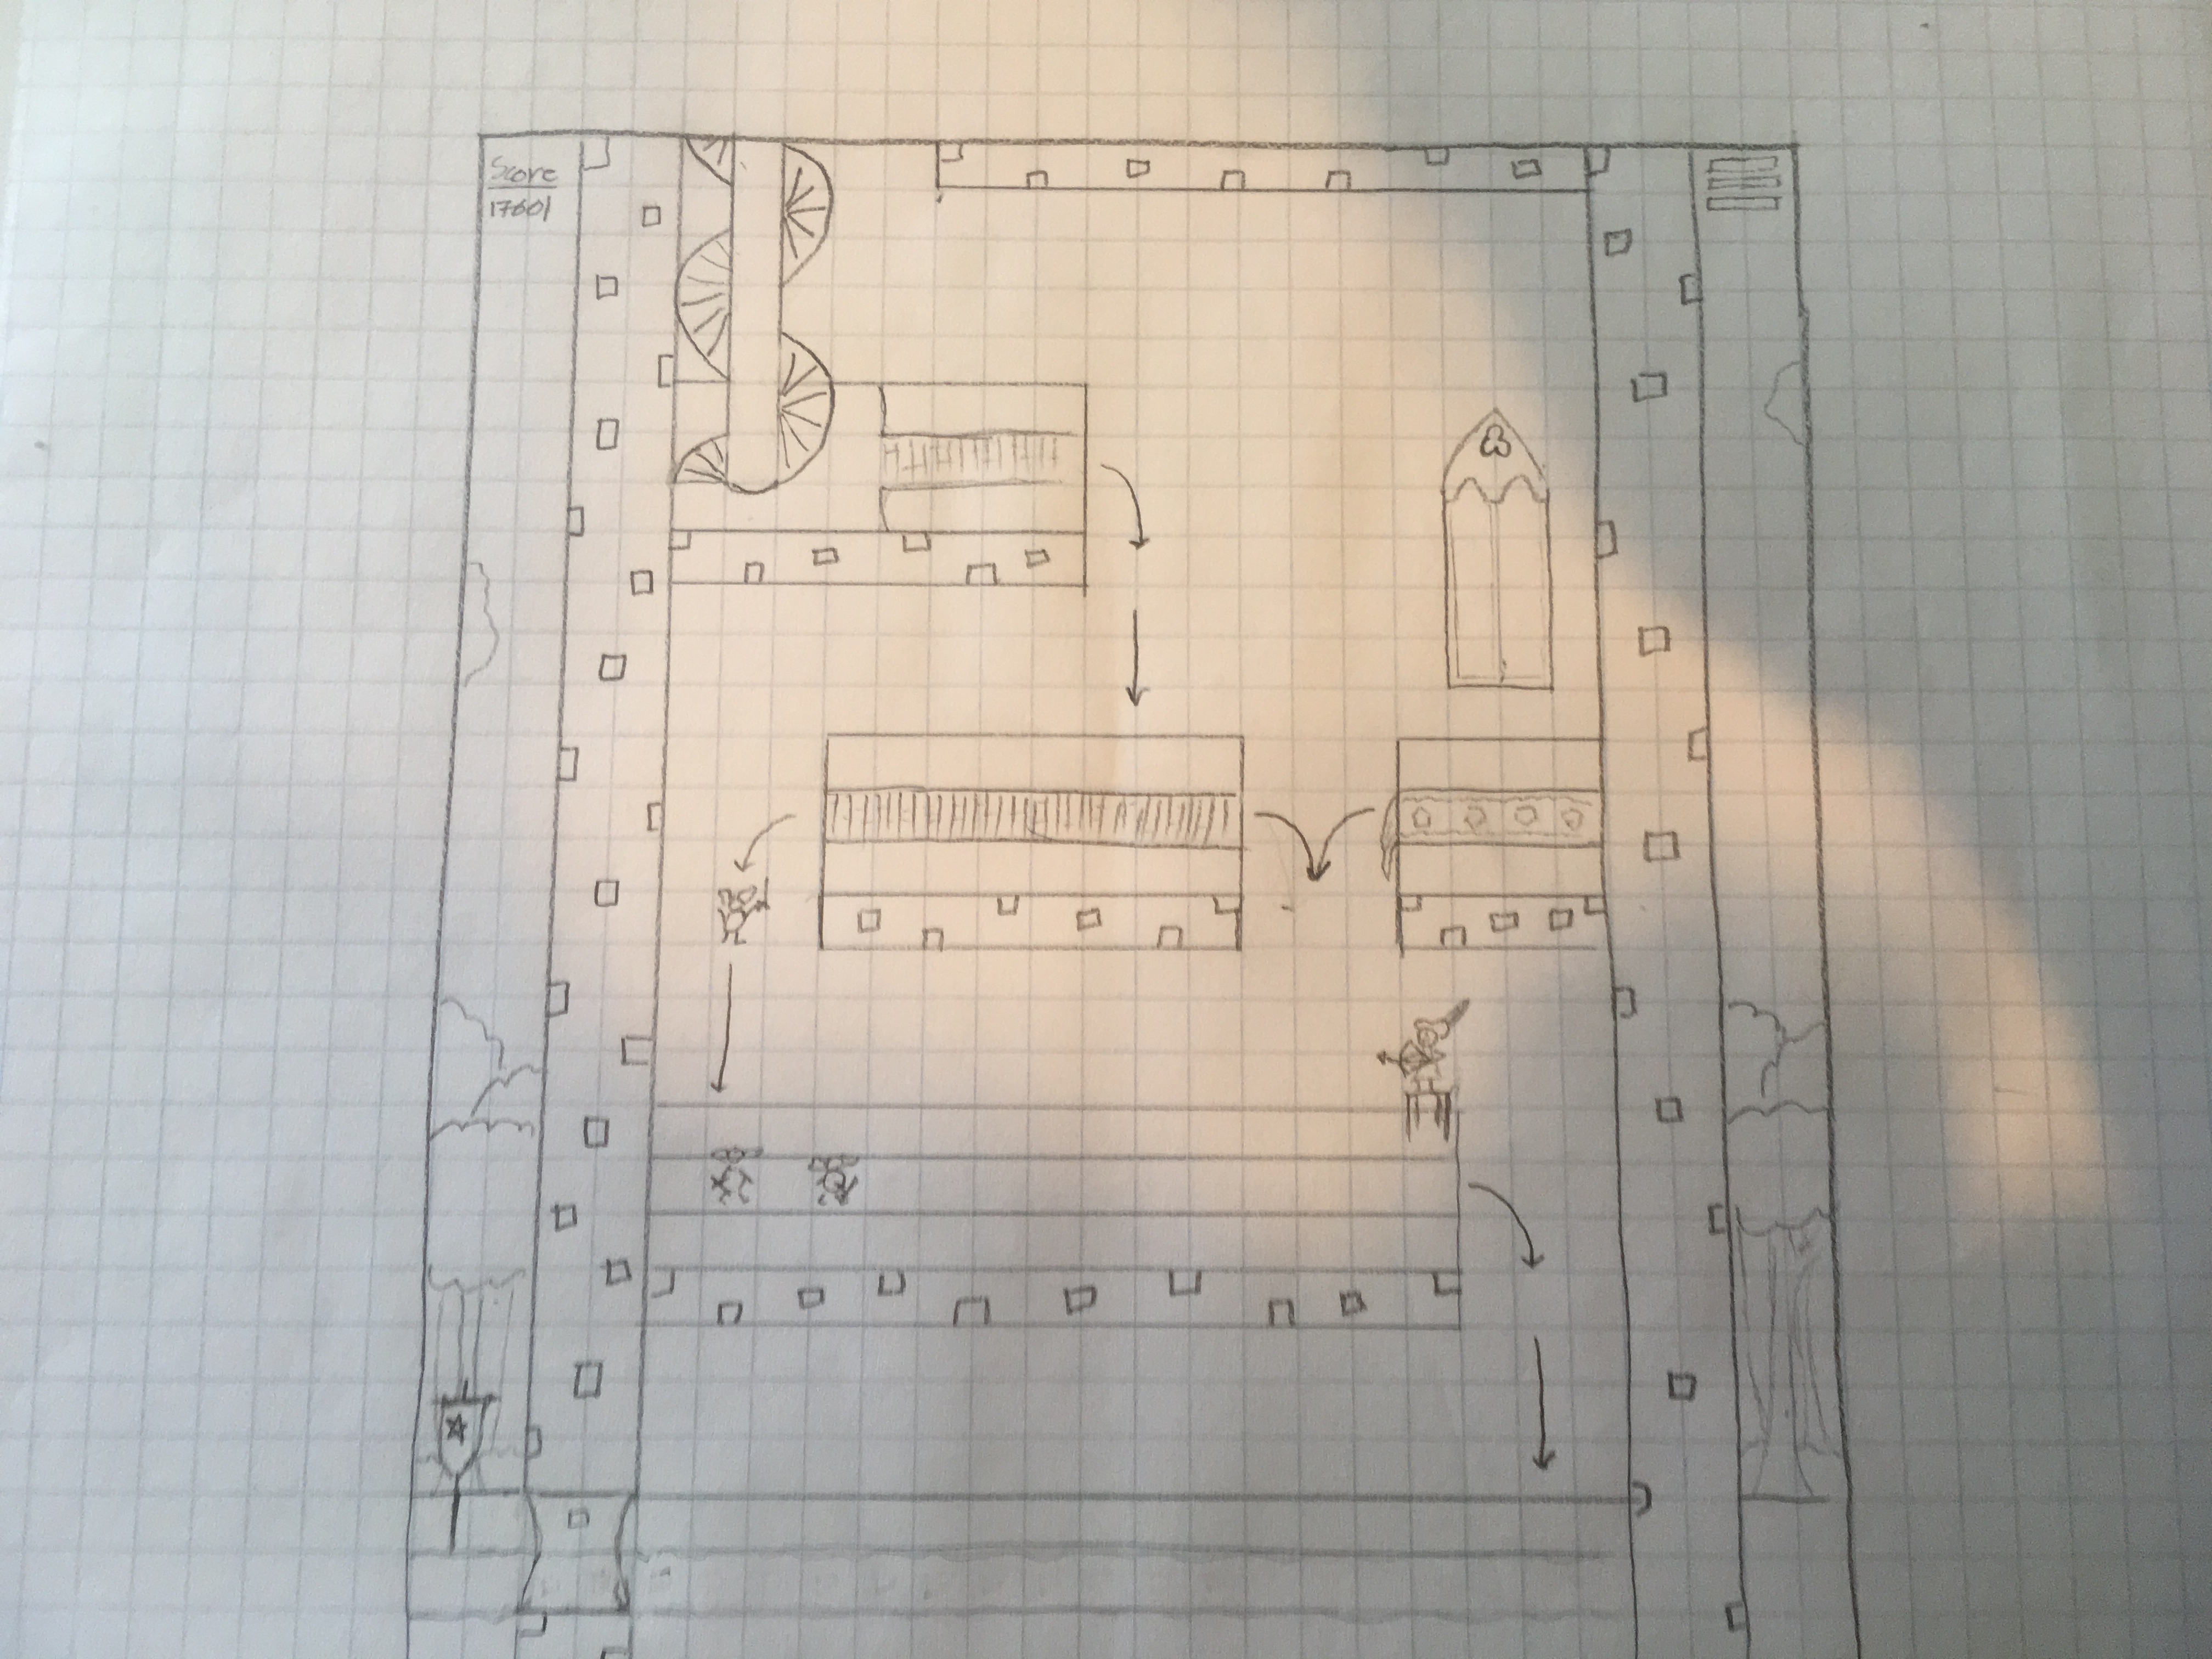 Score
17601